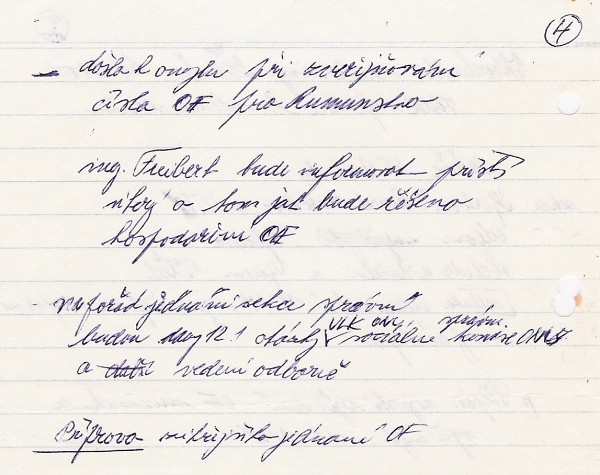 4
– došlo k omylu při zveřejňování
čísla OF pro Rumunsko
ing. Freibert bude informovat příští
úterý o tom jak bude řešeno
hospodaření OF
na pořad jednání sekce správní
budou dány 12.1 otázky sociálně správní
a další vedení odborně
Příprova jednání OF